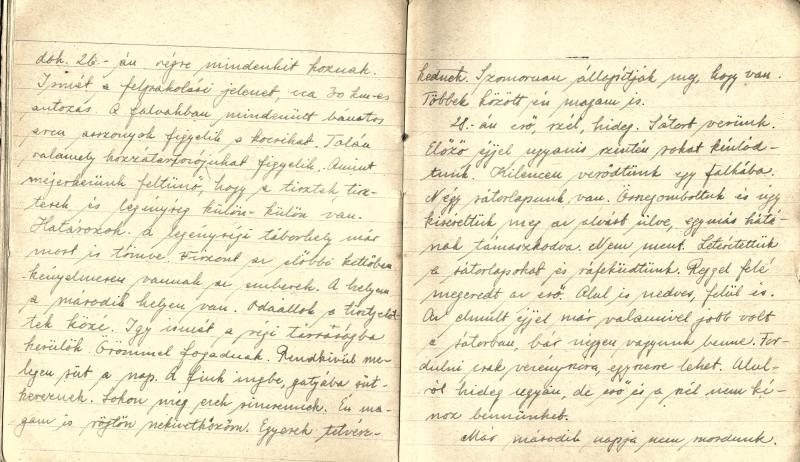 dök. 26.-án végre mindenkit hoznak.
Ismét a felpakolási jelenet, cca 30 km-es
autózás. A falvakban mindenütt bánatos
arcu asszonyok figyelik a kocsikat. Talán
valamely hozzátartozójukat figyelik. Amint
megérkezünk feltünő, hogy a tisztek, tisz-
tesek és legénység külön-külön van.
Határozok. A legénységi táborhely már
most is tömve. Viszont az előbbi kettőben
kényelmesen vannak az emberek. A helyem
a második helyen van. Odaállok a tisztjelöl
tek közé. Igy ismét a régi társaságba
kerülök Örömmel fogadnak. Rendkivül me-
legen süt a nap. A fiuk ingbe, gatyába süt-
kéreznek. Sokan meg ezek sincsenek. Én ma-
gam is rögtön nekivetkőzöm. Egyesek tetvész-
kednek. Szomoruan állapítják meg, hogy van.
Többek között én magam is.
28.-án eső, szél, hideg. Sátort verünk.
Előző éjjel ugyanis szintén sokat kinlód-
tunk. Kilencen verődtünk egy falkába.
Négy sátorlapunk van. Összegomboltuk és ugy
kiséreltük meg az alvást ülve, egymás hátá-
nak támaszkodva. Nem ment. Leteritettük
a sátorlapokat és ráfeküdtünk. Reggel felé
megeredt az eső. Alul is nedves, felül is.
Az elmult éjjel már valamivel jobb volt
a sátorban, bár négyen vagyunk benne. For-
dulni csak vezényszóra, egyszerre lehet. Alul-
ról hideg ugyan, de eső és a szél nem ki-
noz bennünket.
Már második napja nem mosdunk.